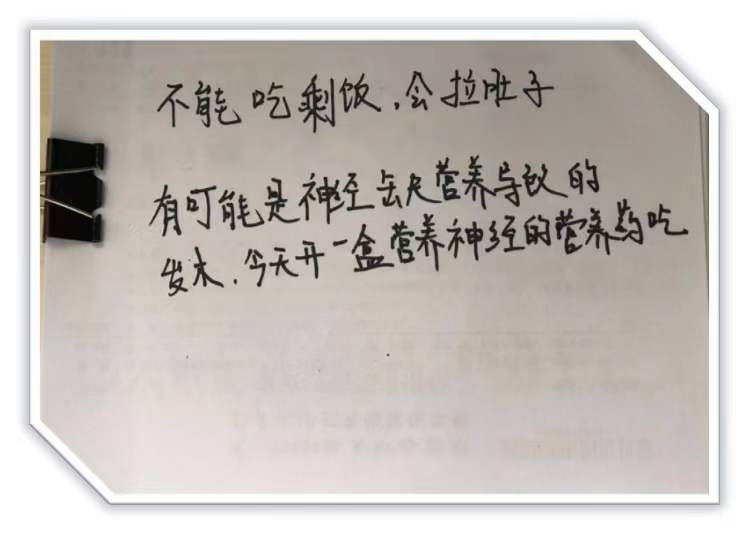 不能吃剩饭,会拉肚子
有可能是神经缺营养导致的
发木,今天开一盒营养神经的营养药吃